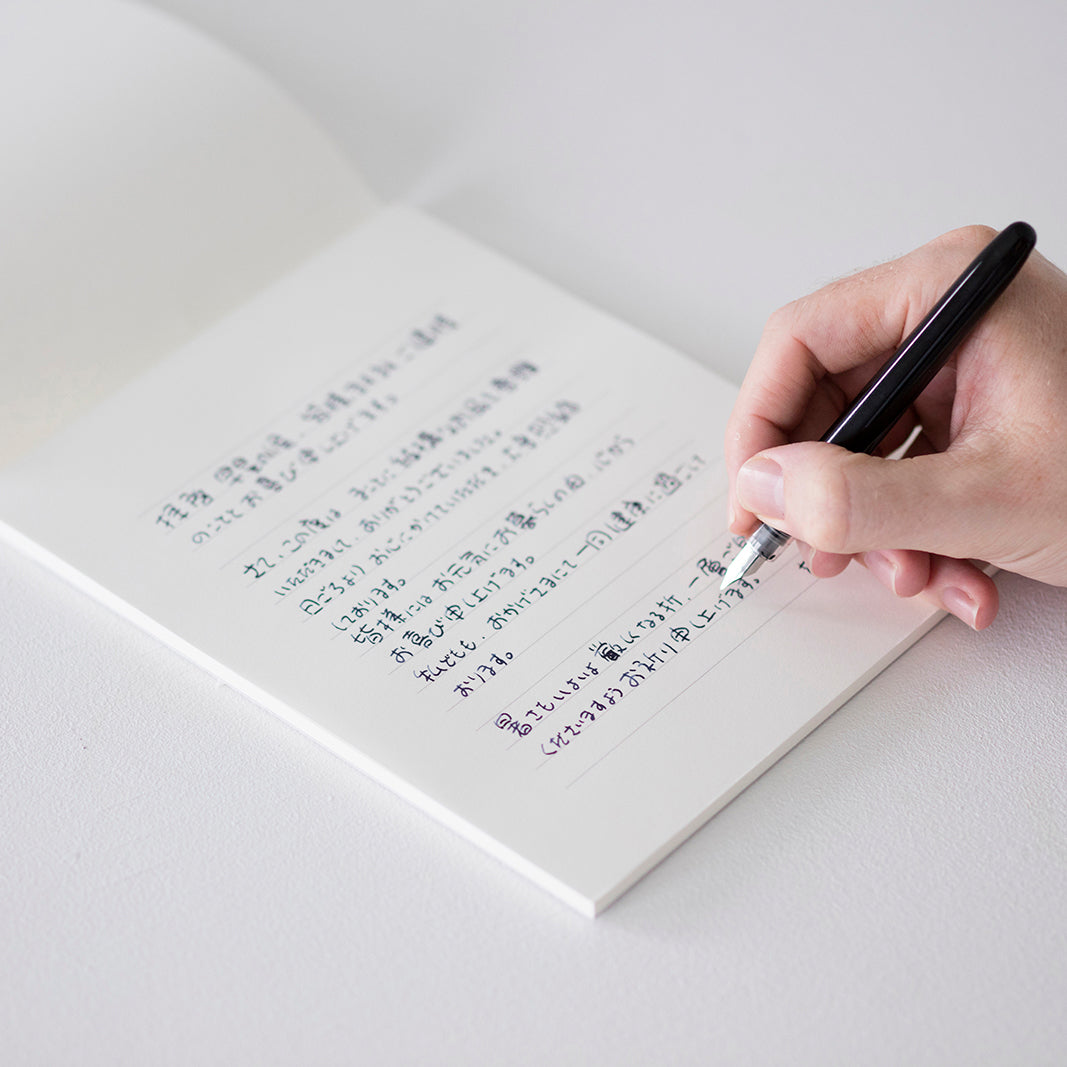 拝啓 盛夏の候、皆様ますますご清祥
のこととお喜び申し上げます。
さて、この度は まことに結構なお品を
いただきまして、ありがとうございました。
日ごろより お心にかけていただき、
しております。
皆様には お元気にお暮らしの由、心から
お喜び申し上げます。
私どもも、おかげさまにて 一同健康に過ごして
おります。
暑さもいよいよ厳しくなる折、一層ご
くださいますよう お祈り申し上げます。